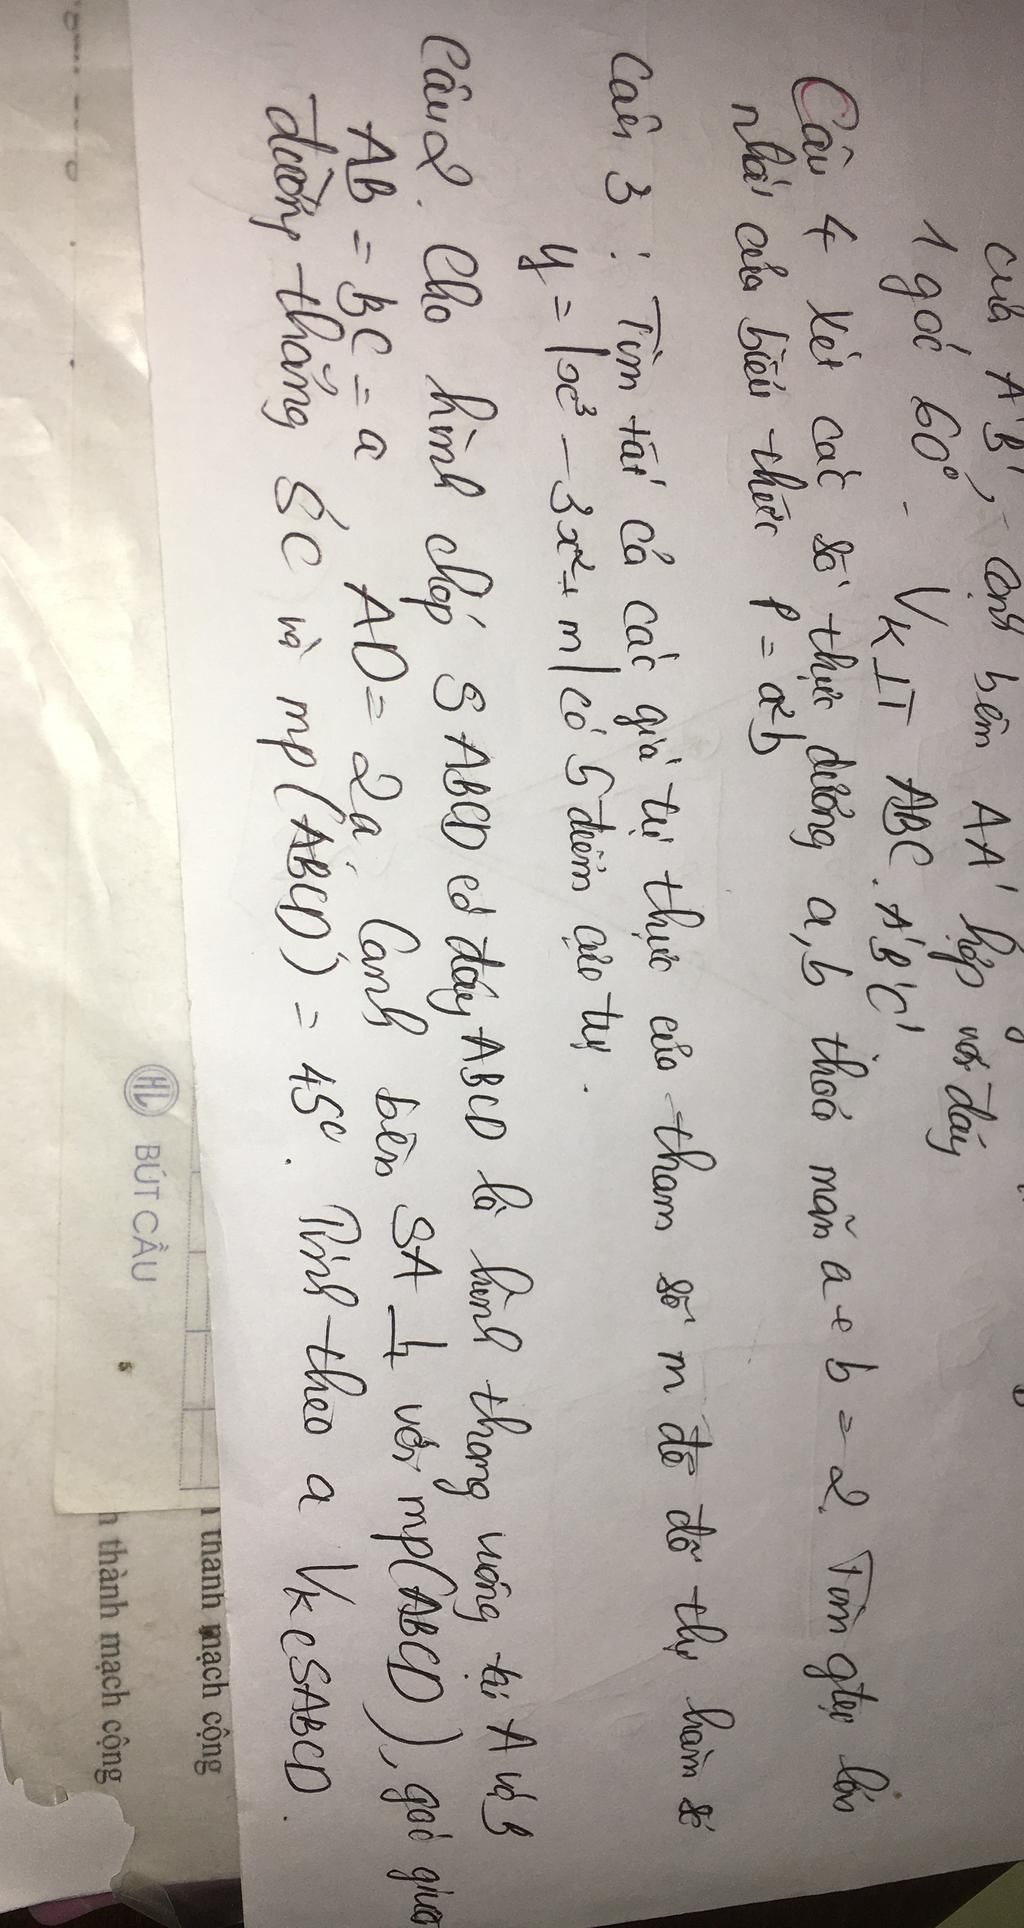 của A'B', cạnh bên AA' hợp với đáy
1 góc 60° - VKLT ABC.A'B'C'
Câu 4 Xét các số thực dương a,b thoả mãn a + b = 2. Tìm gtrị lớn
nhất của biểu thức P = a²b
Câu 3 : Tìm tất cả các giá trị thực của tham số m để đồ thị hàm số
y = |x³ - 3x² + m| có 5 điểm cực trị.
Câu 2. Cho hình chóp SABCD có đáy ABCD là hình thang vuông tại A và B
AB = BC = a AD = 2a. Cạnh bên SA ⊥ với mp(ABCD), góc giữa
đường thẳng SC và mp(ABCD) = 45°. Tính theo a VKCSABCD.
HL BÚT CẦU
thành mạch cộng
thành mạch cộng